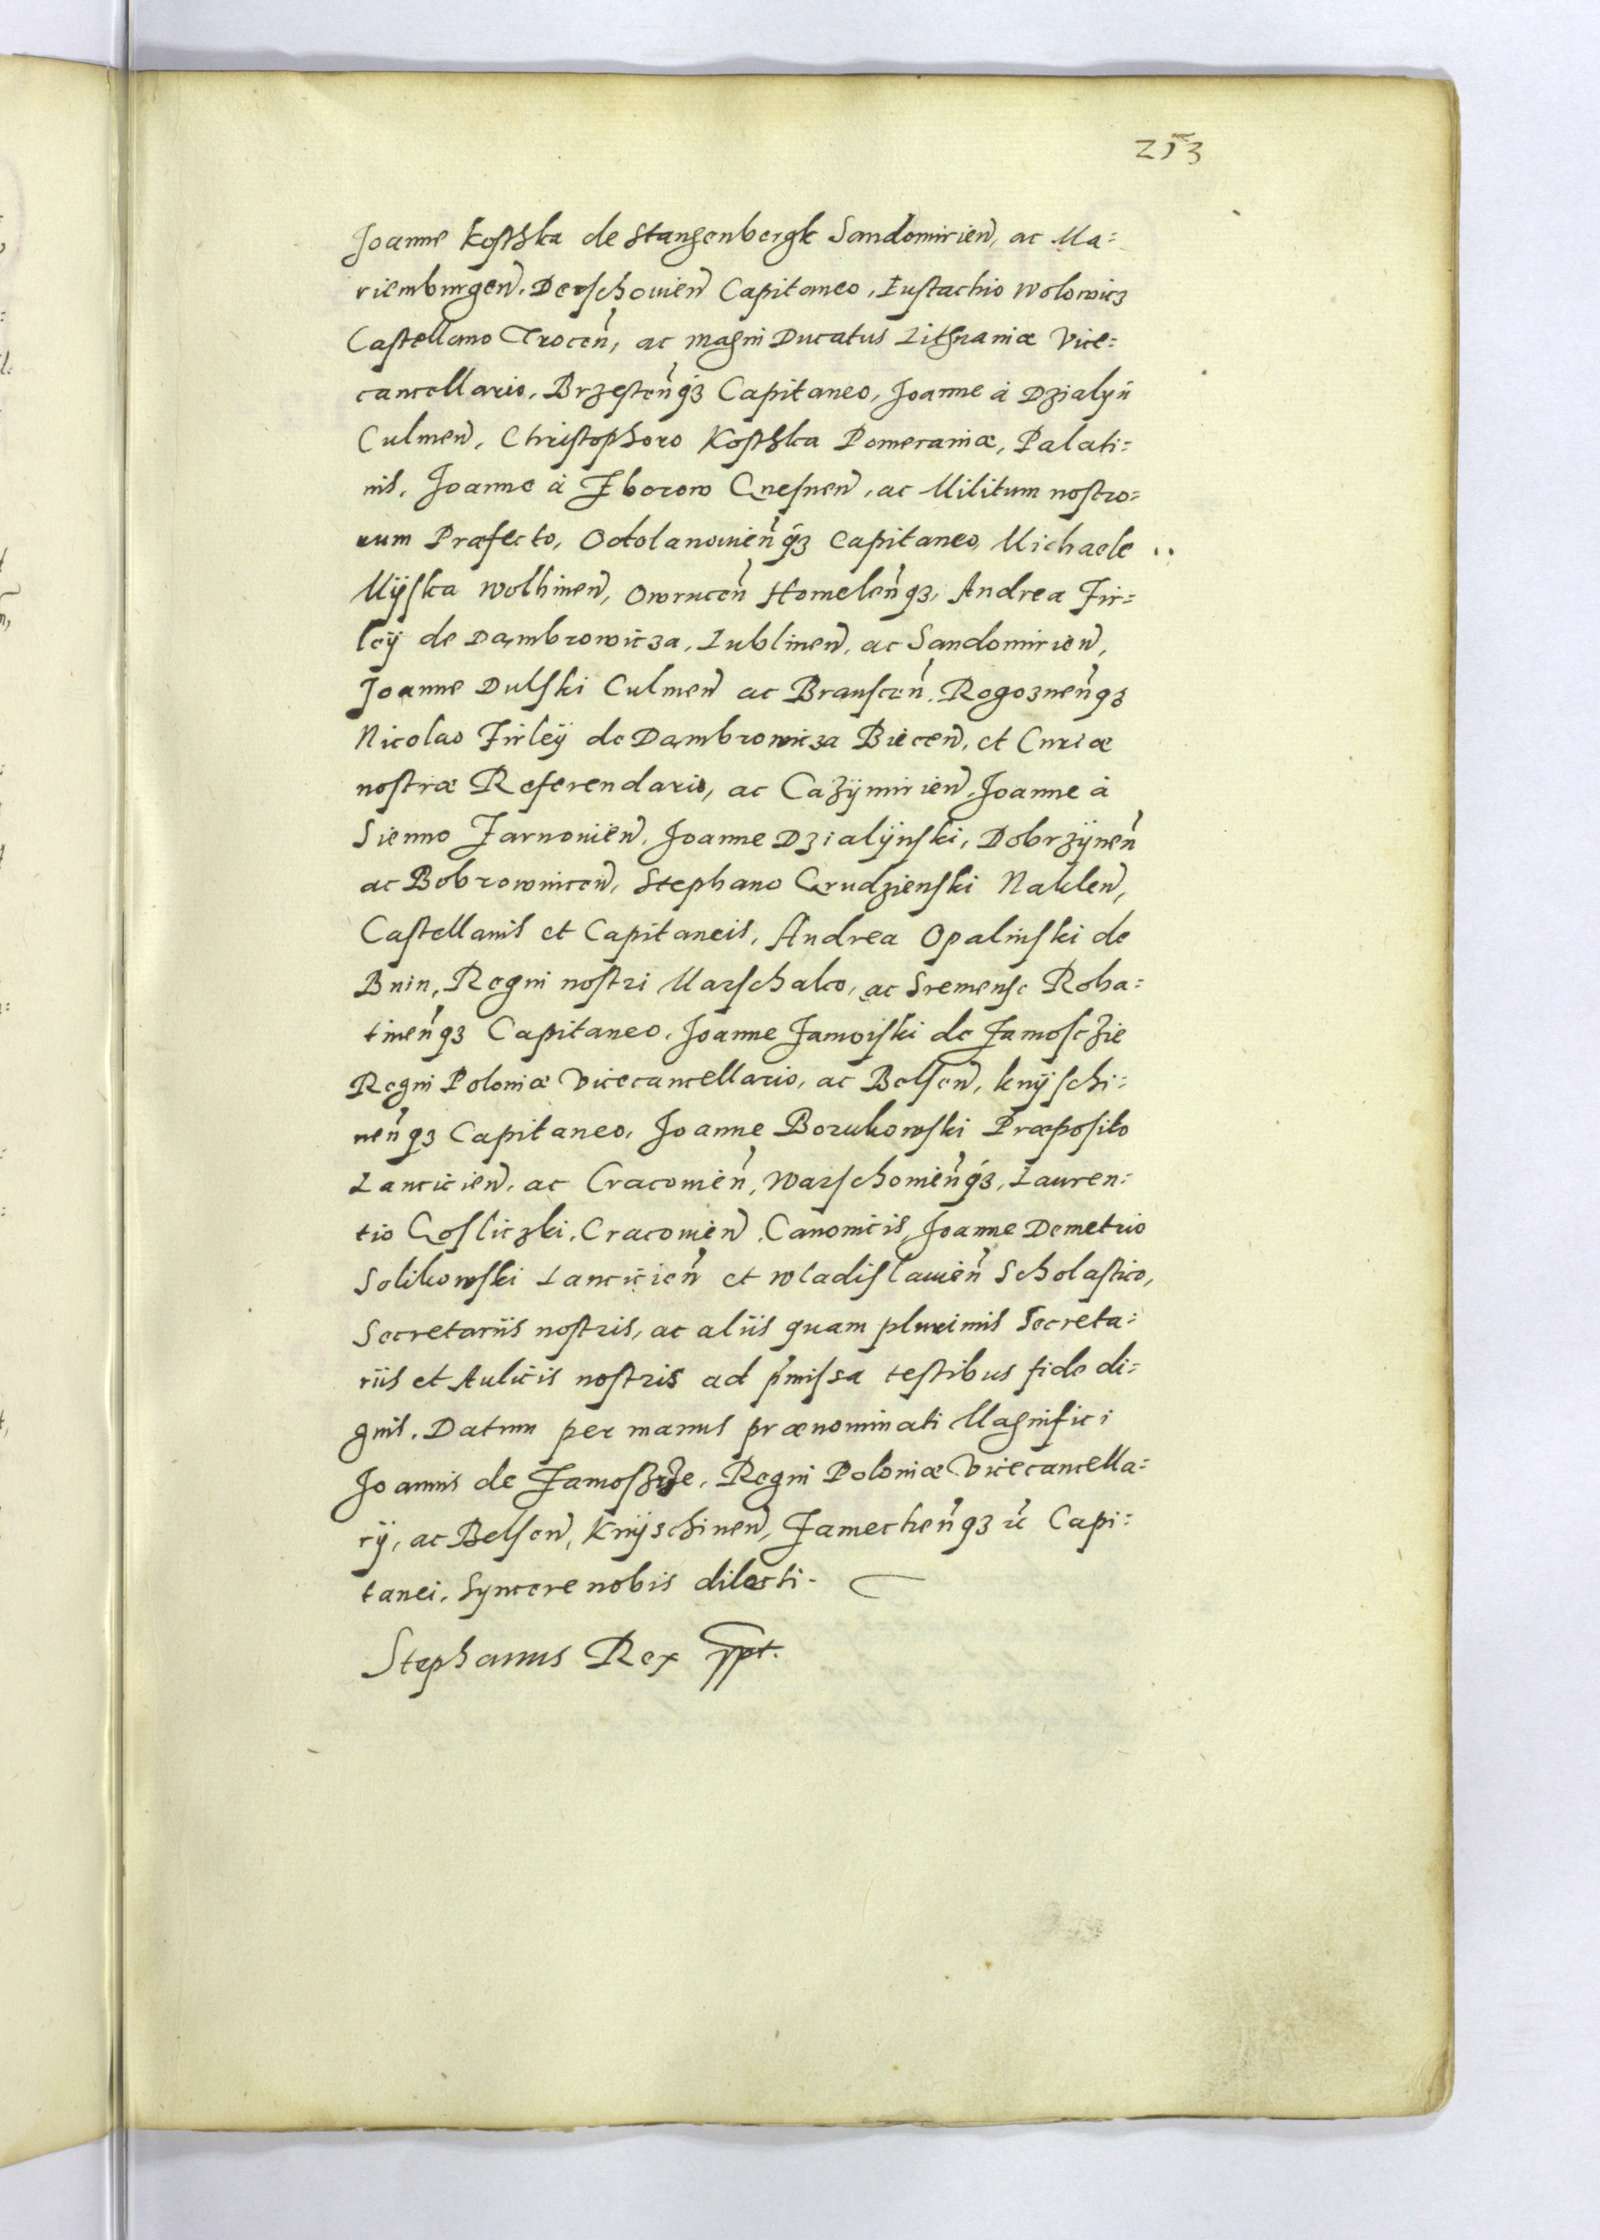 253
Joanne Kosthka de Stangenbergk Sandomirien̄, ac Ma=
riemburgen̄. Derschowien̄ Capitaneo, Eustachio Wolowicz
Castellano Trocen̄, ac magni Ducatus Lithuaniæ Vice=
cancellario, Brzesten̄qꝫ Capitaneo, Joanne à Dzialÿn
Culmen̄, Christophoro Kosthka Pomeraniæ, Palati=
nis, Joanne à Zborow Gnesnen̄, ac Militum nostro=
rum Præfecto, Odolanowien̄qꝫ Capitaneo, Michaele
Mÿska Wolhinen̄, Owrucen̄ Homelen̄qꝫ, Andrea Fir=
leÿ de Dambrowicza, Lublinen̄, ac Sandomirien̄,
Joanne Dulski Culmen̄ ac Branscen̄. Rogoznen̄qꝫ
Nicolao Firleÿ de Dambrowicza Biecen̄, et Curiæ
nostræ Referendario, ac Cazÿmirien̄, Joanne à
Sienno Zarnowien̄, Joanne Dzialÿnski, Dobrzÿnen̄
ac Bobrownicen̄, Stephano Grudzienski Naklen̄,
Castellanis et Capitaneis, Andrea Opalinski de
Bnin, Regni nostri Marschalco, ac Sremense Roha=
tinen̄qꝫ Capitaneo, Joanne Zamoiski de Zamosczie
Regni Poloniæ Vicecancellario, ac Belsen̄, Knÿschi=
nen̄qꝫ Capitaneo, Joanne Borukowski Præposito
Lancicien̄. ac Cracowien̄, Warschowien̄qꝫ, Lauren=
tio Gosliczki, Cracowien̄. Canonicis, Joanne Demetrio
Solikowski Lancicien̄ et Wladislawien̄ Scholastico,
Secretariis nostris, ac aliis quam plurimis Secreta=
riis et Aulicis nostris ad p̄missa testibus fide di=
gnis. Datum per manus prænominati Magnifici
Joannis de Zamoszie, Regni Poloniæ Vicecancella=
rÿ, ac Belsen̄, Knÿschinen̄, Zamechen̄qꝫ Capi=
tanei, Syncere nobis dilecti.
Stephanus Rex sspt.